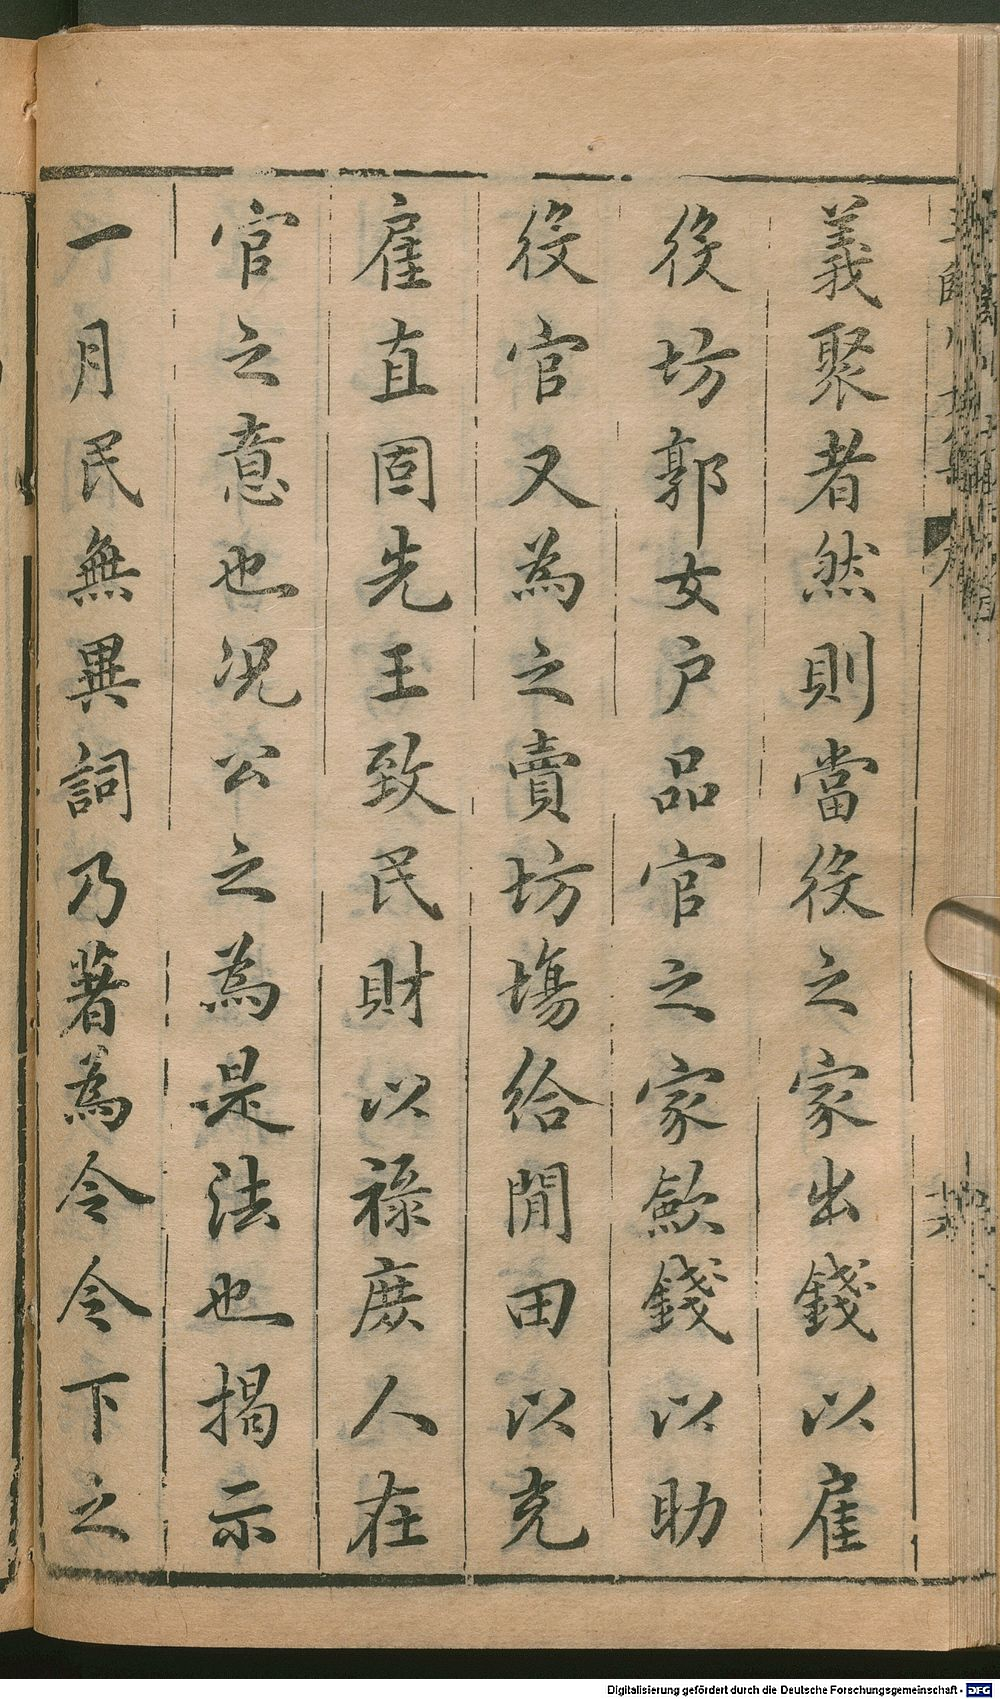 義聚者然則當役之家出錢以雇
役坊郭女户品官之家歛錢以助
役官又為之賣坊塲給閒田以充
雇直固先王致民財以祿庻人在
官之意也况公之為是法也揭示
一月民無異詞乃著為令令下之
Digitalisierung gefördert durch die Deutsche Forschungsgemeinschaft - DFG